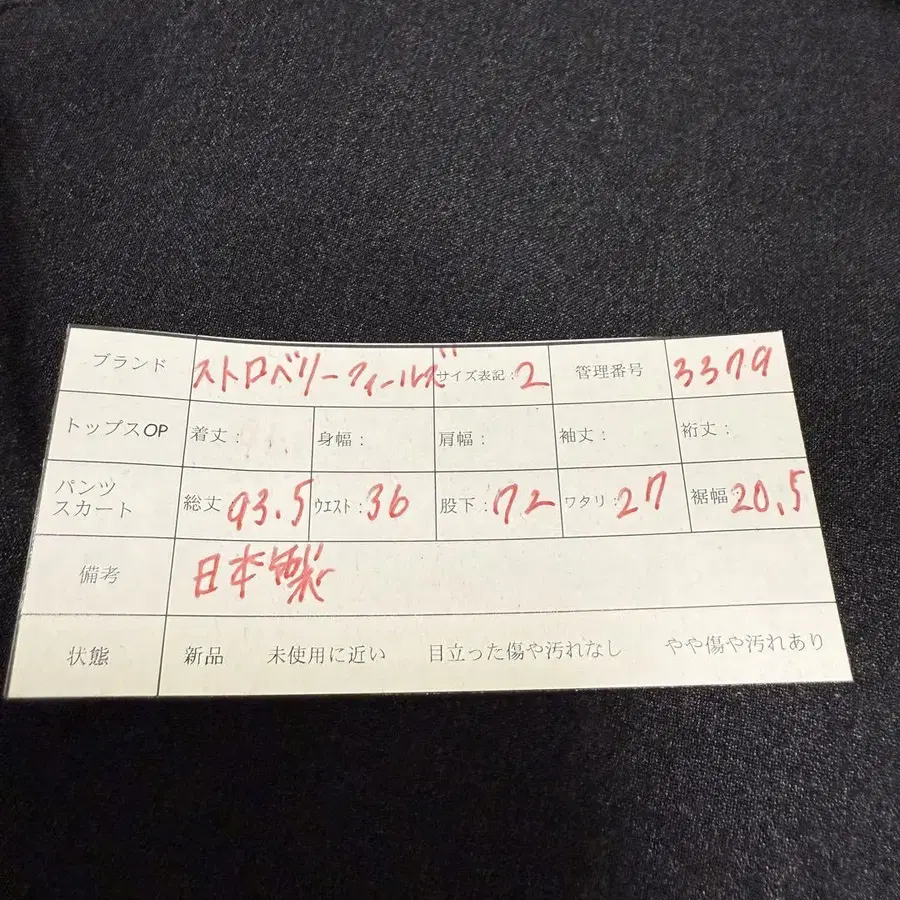 ブランド ストロベリーフィールズ サイズ表記：2 管理番号 3379
トップスOP 着丈： 身幅： 肩幅： 袖丈： 裄丈：
パンツ
スカート 総丈 93.5 ウエスト：36 股下：72 ワタリ：27 裾幅：20.5
備考 日本製
状態 新品 未使用に近い 目立った傷や汚れなし やや傷や汚れあり